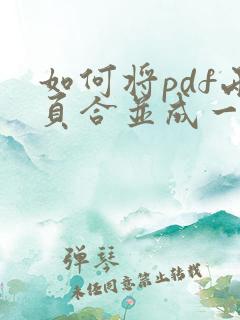 如何将pdf
页合并成一
弹琴
未经同意禁止转载